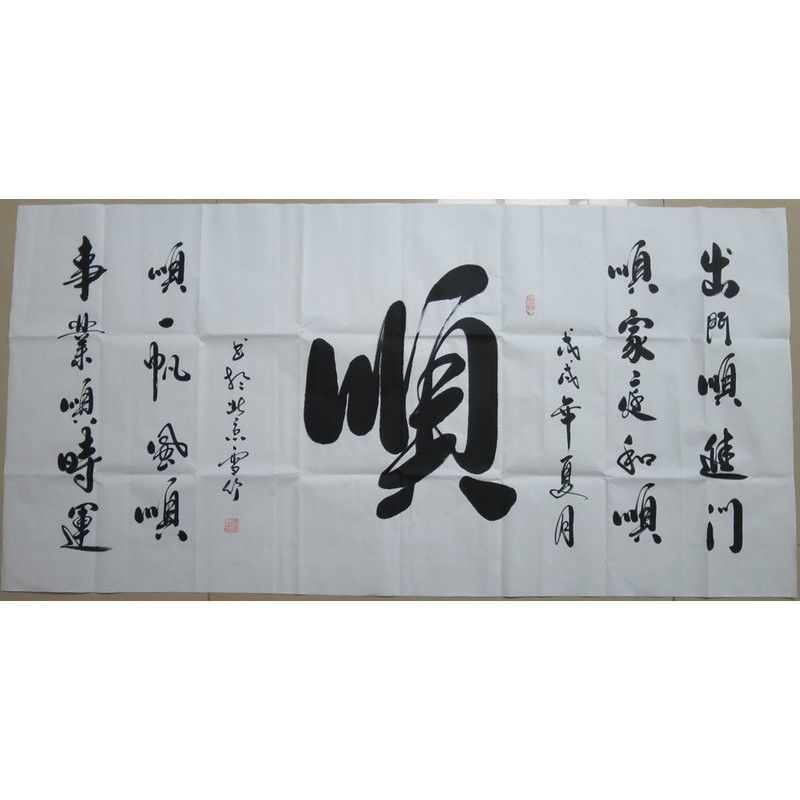 出門順進门
順家庭和順
戊戌年夏月
順
事業順時運
順一帆風順
书於北京雪竹